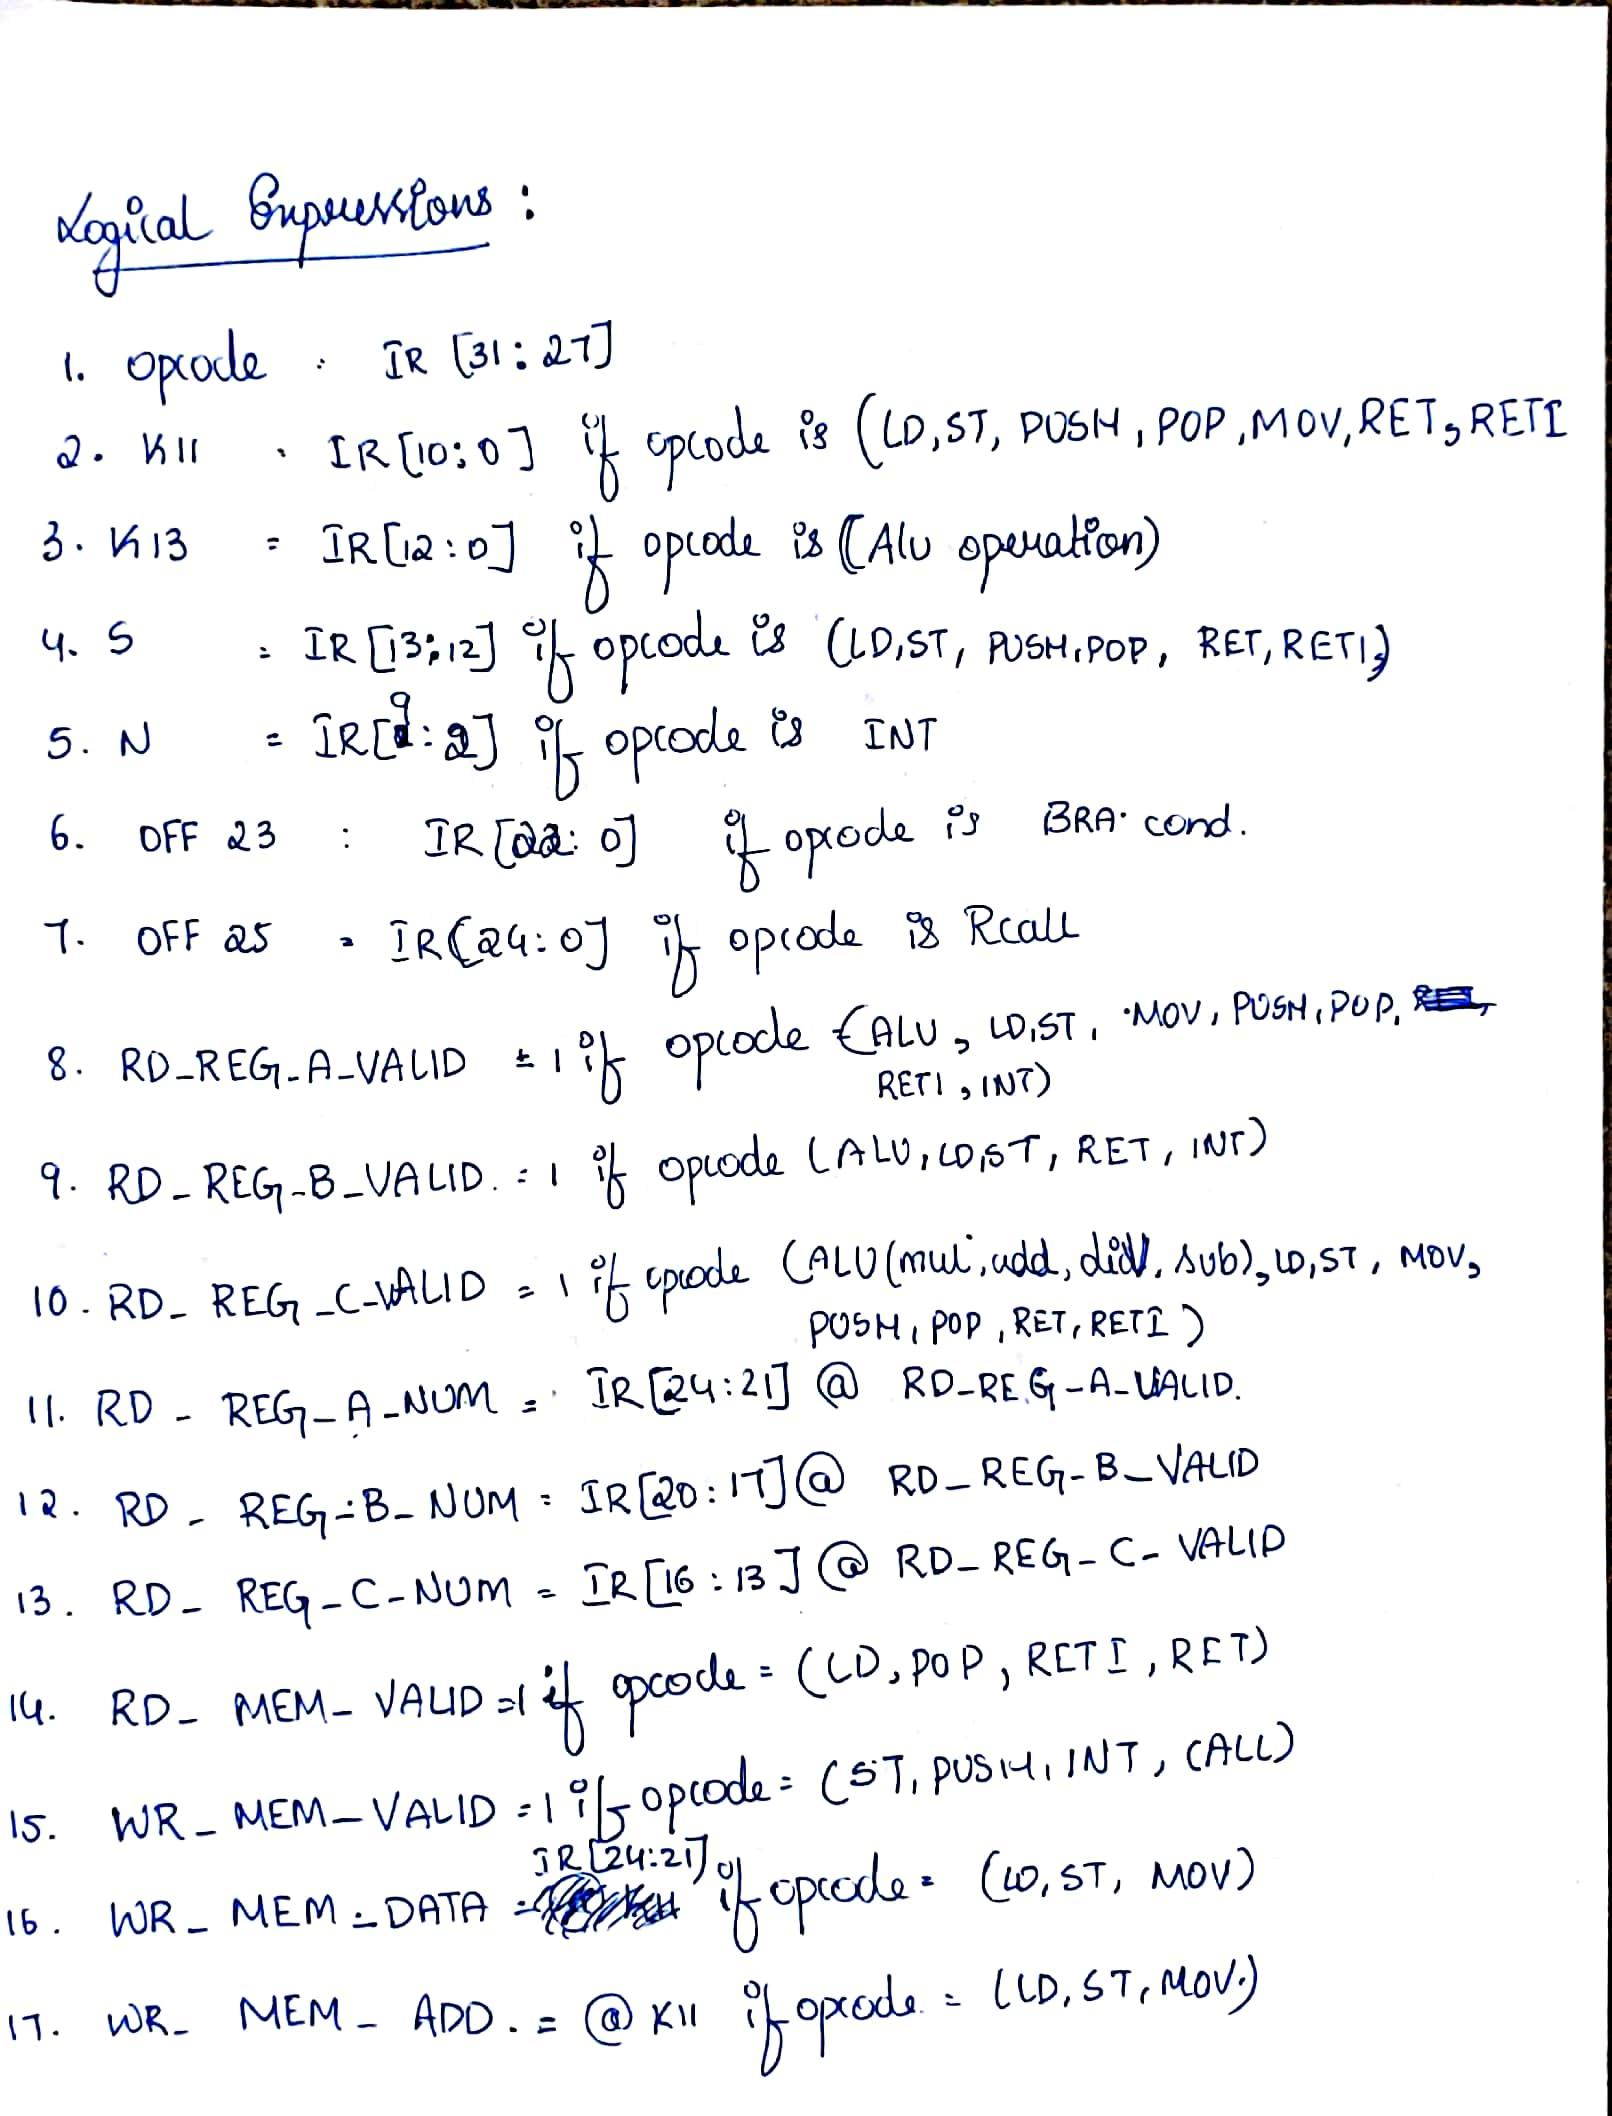 Logical Expressions :
1. opcode : IR [31 : 27]
2. K11 . IR [10:0] if opcode is (LD,ST, PUSH, POP, MOV, RET, RETI
3. K13 = IR [12:0] if opcode is (Alu operation)
4. S = IR [13:12] if opcode is (LD,ST, PUSH,POP, RET, RETI)
5. N = IR[9:2] if opcode is INT
6. OFF 23 : IR [22:0] if opcode is BRA. cond.
7. OFF 25 = IR[24:0] if opcode is Rcall
8. RD_REG_A_VALID = 1 if opcode (ALU, LD,ST, MOV, PUSH, POP,
RETI, INT)
9. RD_REG_B_VALID. = 1 if opcode (ALU, LD,ST, RET, INT)
10. RD_REG_C_VALID = 1 if opcode (ALU(mul, add, div, sub), LD,ST, MOV,
PUSH, POP, RET, RETI)
11. RD_REG_A_NUM = IR [24:21] @ RD_REG_A_VALID.
12. RD_REG_B_NUM = IR [20:17] @ RD_REG_B_VALID
13. RD_REG_C_NUM = IR [16:13] @ RD_REG_C_VALID
14. RD_MEM_VALID =1 if opcode = (LD, POP, RETI, RET)
15. WR_MEM_VALID =1 if opcode = (ST, PUSH, INT, CALL)
16. WR_MEM_DATA = IR [24:21] if opcode = (LD, ST, MOV)
17. WR_MEM_ADD. = @ K11 if opcode. = (LD, ST, MOV.)